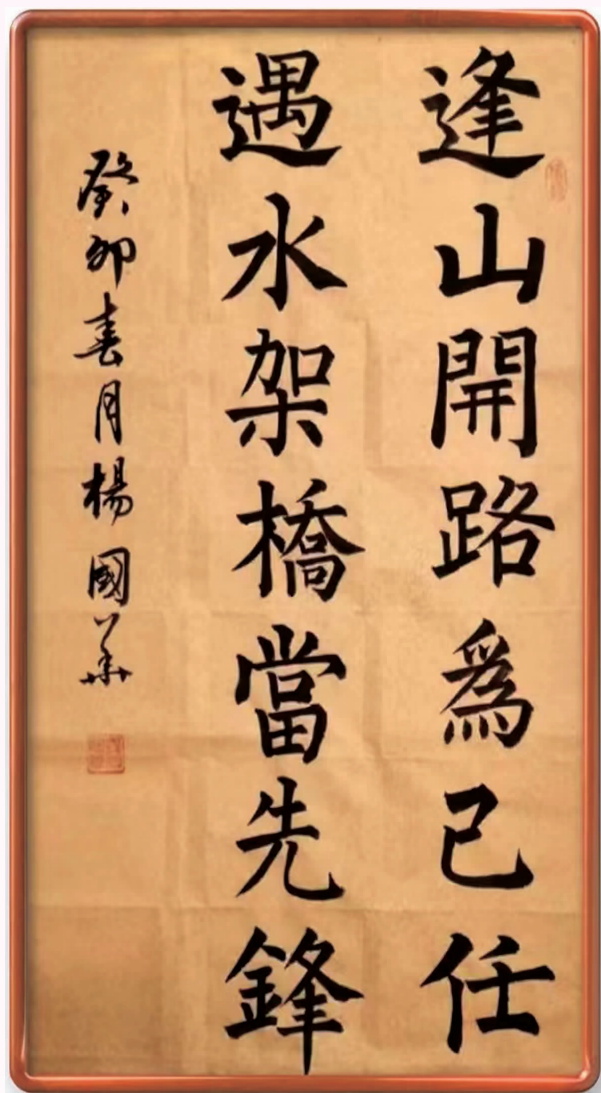 逢山開路爲己任
遇水架橋當先鋒
癸卯春月楊國華